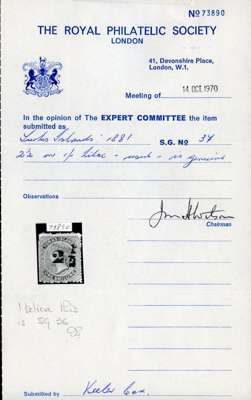 No 73890
THE ROYAL PHILATELIC SOCIETY
LONDON
41, Devonshire Place,
London, W.1.
Meeting of 14 OCT 1970
In the opinion of the EXPERT COMMITTEE the item
submitted as
Turks Islands 1881 S.G. No 34
2½ on 1/- lilac - - is genuine
Observations
Chairman
73890
I believe this
is SG 36
Submitted by